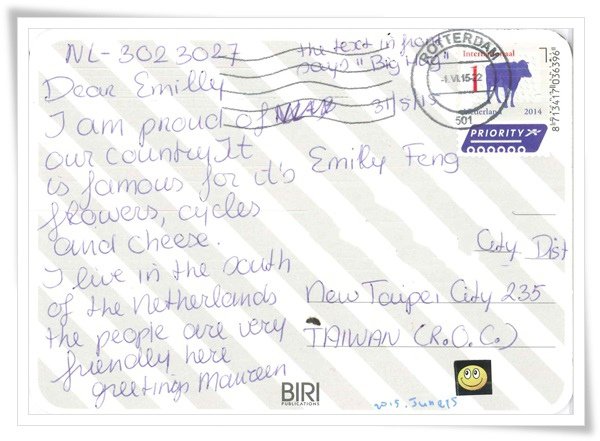 NL-3023027
the text in front
says "Big
31/5/15
Dear Emilly
I am proud of
our country It
is famous for it's
flowers, cycles
and cheese.
I live in the south
of the Netherlands
the people are very
friendly here
greetings Maureen
ROTTERDAM
-1.VI.15-22
501
Internationaal
1
Nederland
2014
8 713417 036396
PRIORITY
Emily Feng
City Dist
New Taipei City 235
TAIWAN (R.O.C.)
BIRI
PUBLICATIONS
2015. June 15